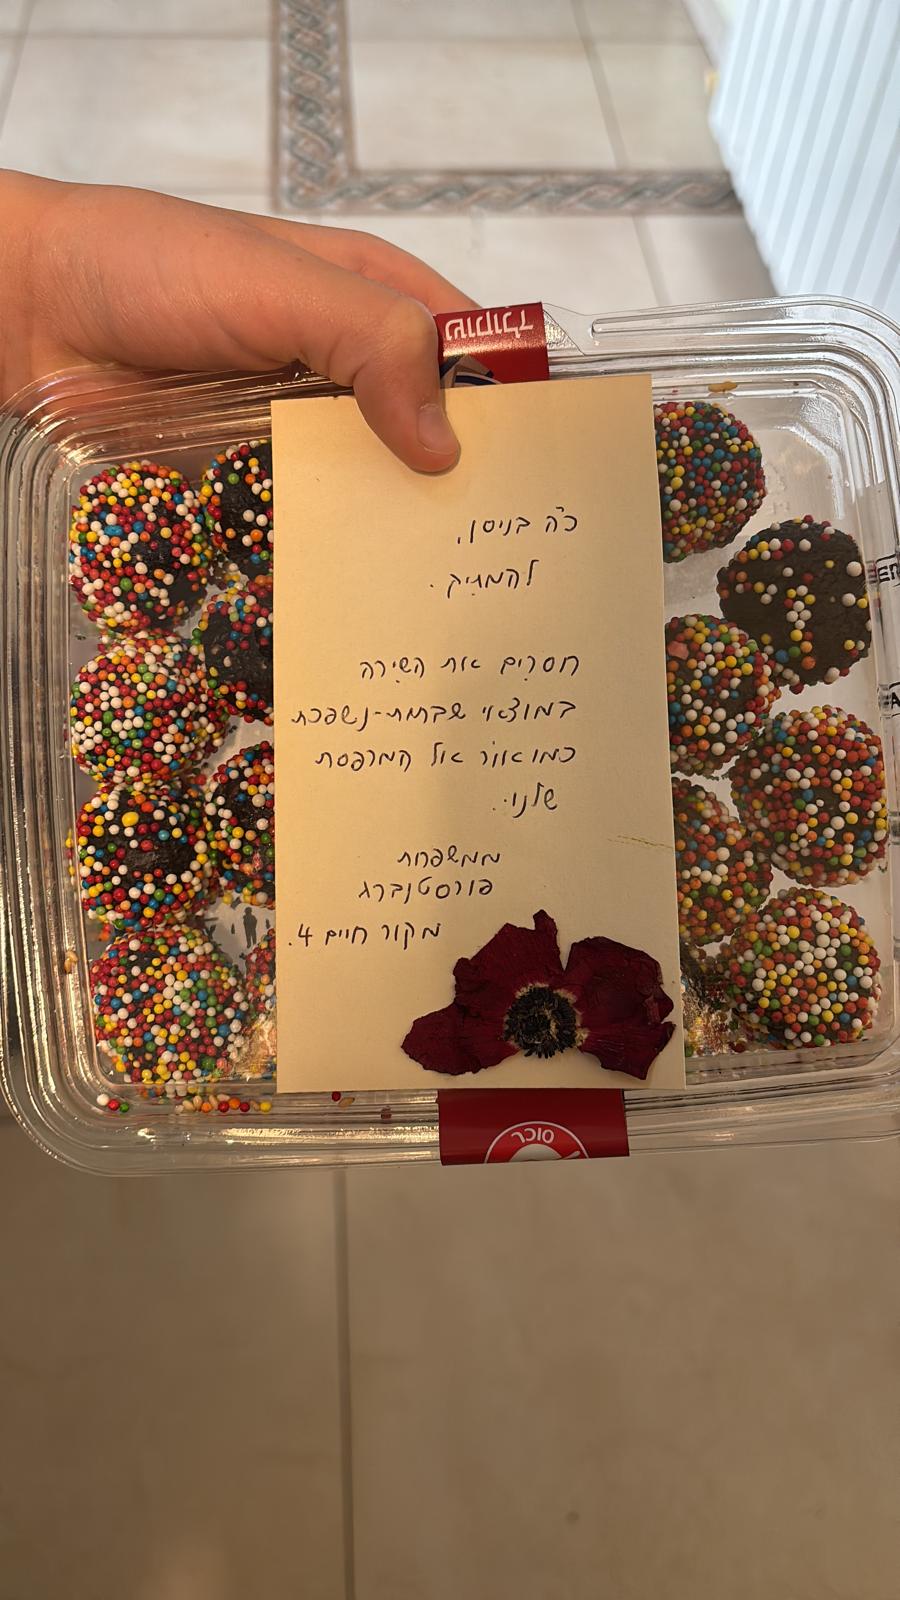 שוקולד
כ"ה בניסן,
להמתיק.
חסרים את השירה
במוצאי שבתות-נשפכת
כמו אור אל המרפסת
שלנו.
ממשפחת
פורסטנברג
מקור חיים 4.